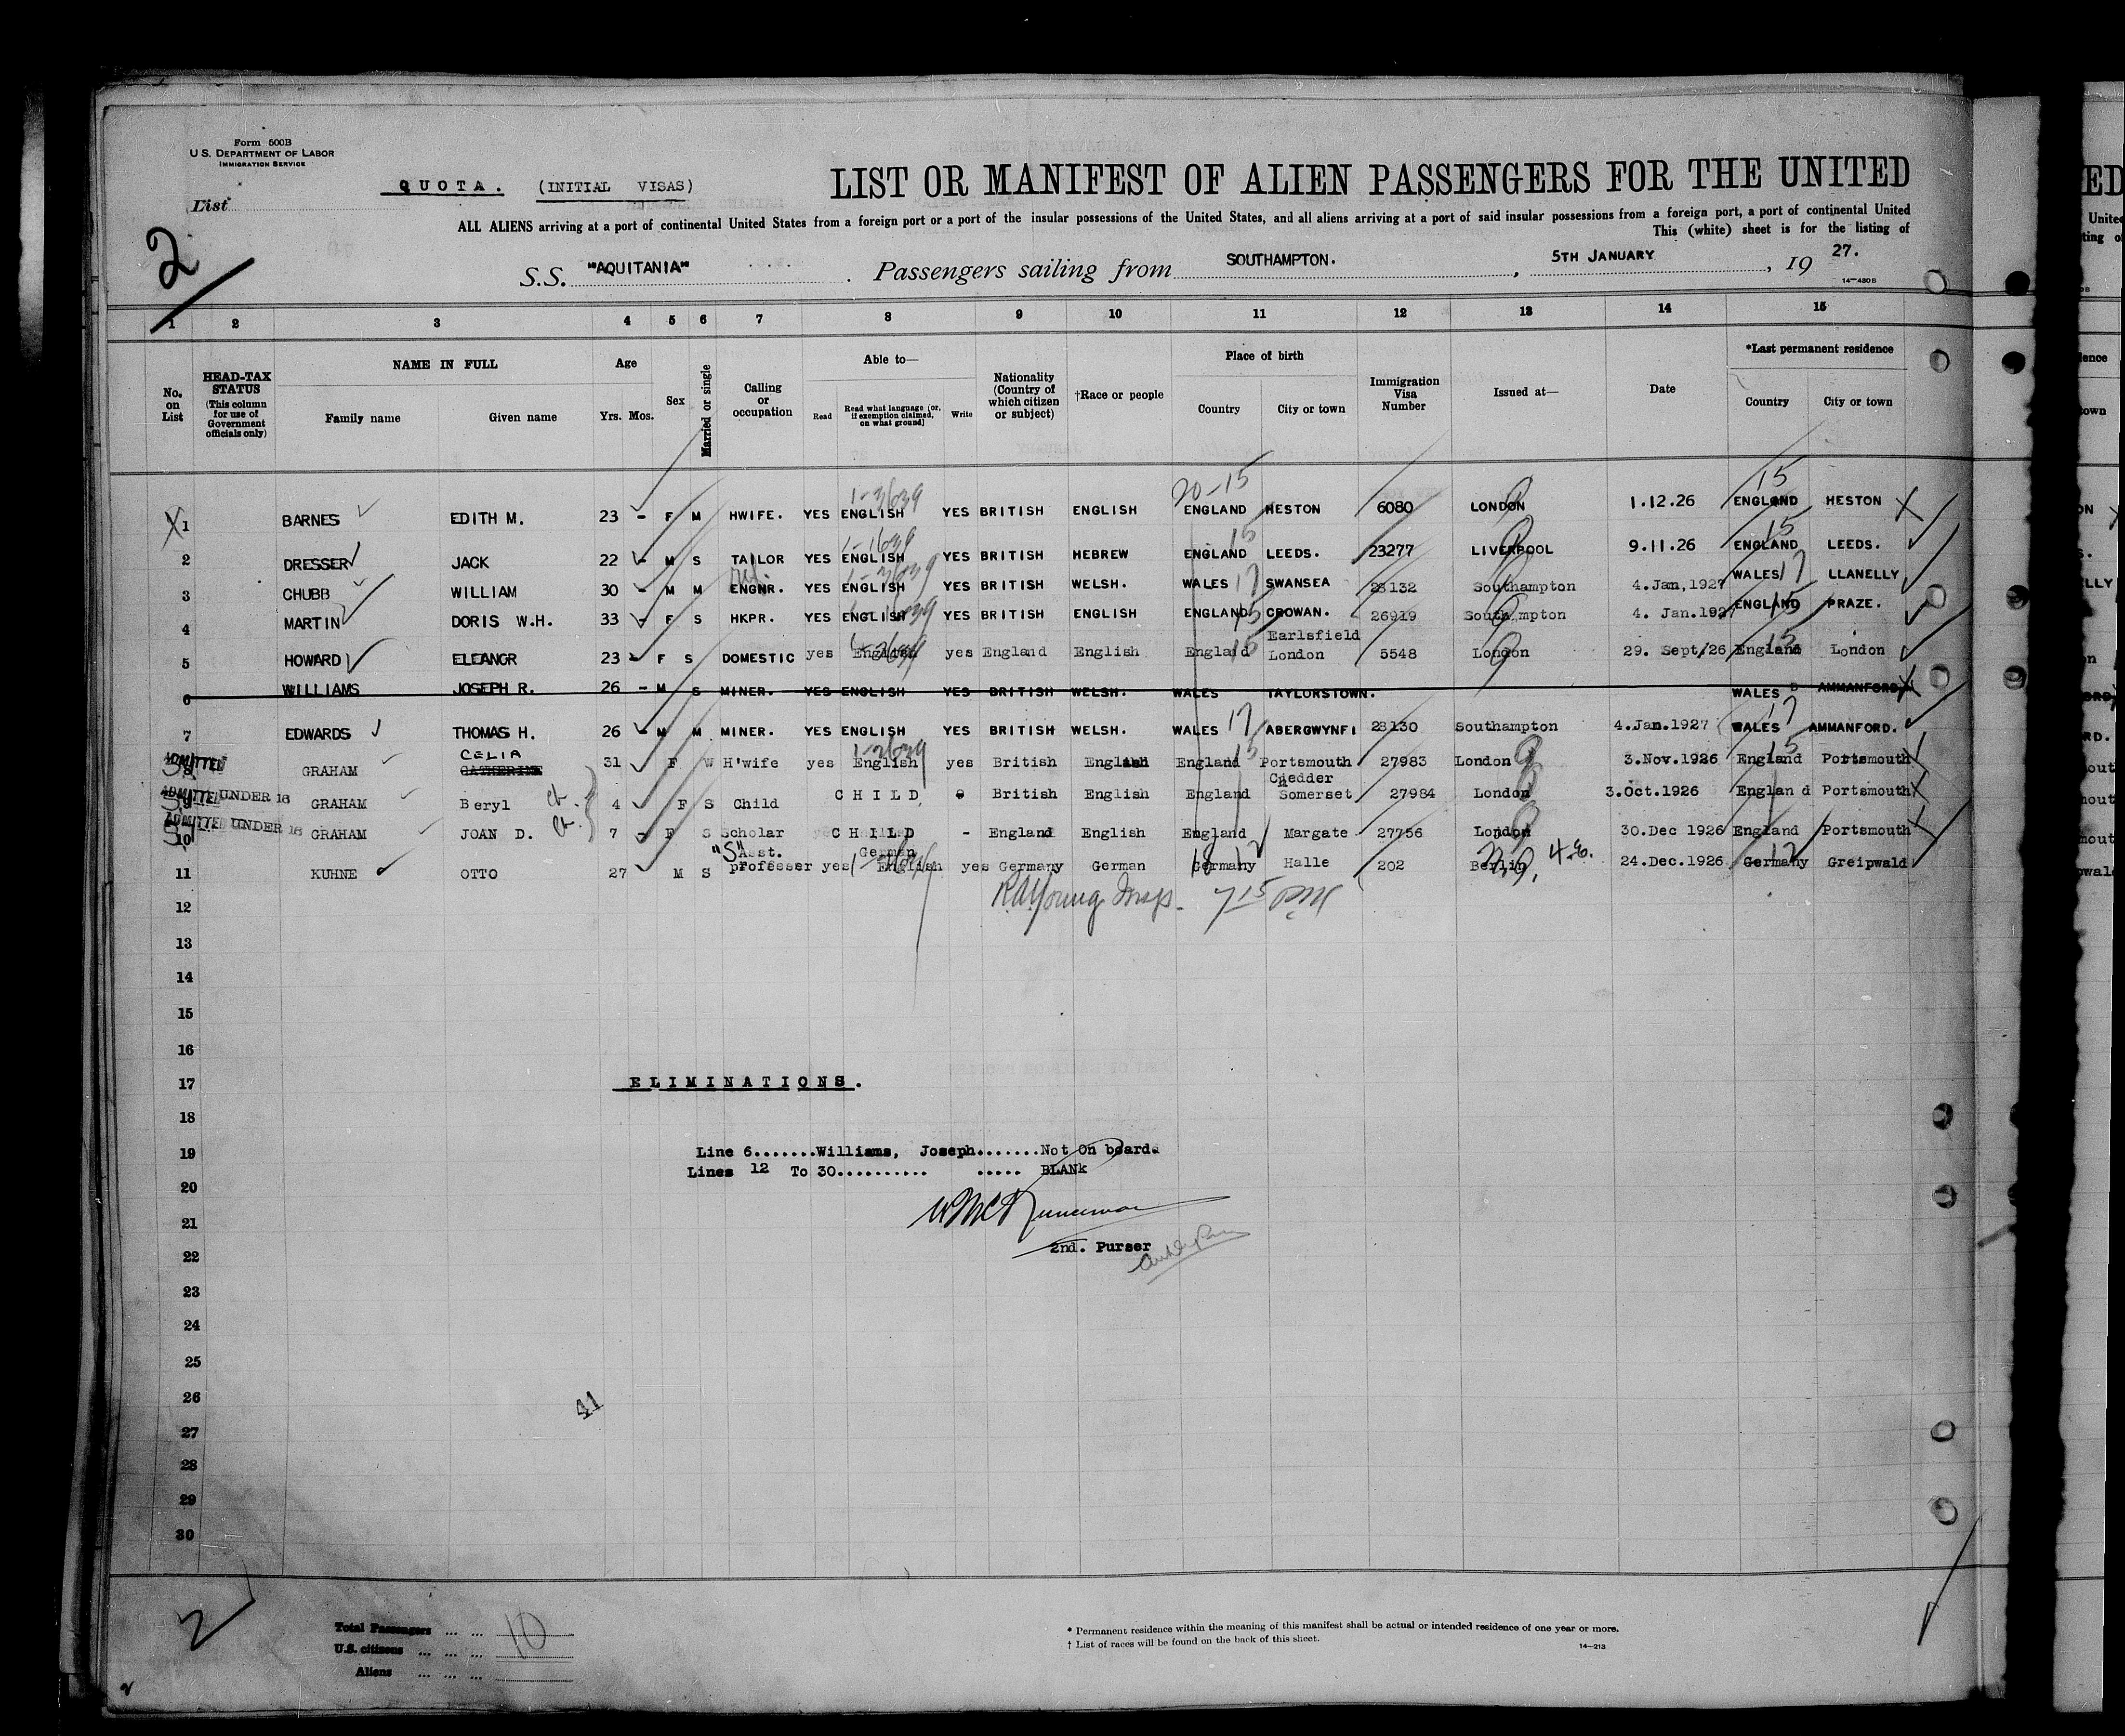 Form 500B
U.S. DEPARTMENT OF LABOR
IMMIGRATION SERVICE
QUOTA. (INITIAL VISAS)
LIST OR MANIFEST OF ALIEN PASSENGERS FOR THE UNITED
List
ALL ALIENS arriving at a port of continental United States from a foreign port or a port of the insular possessions of the United States, and all aliens arriving at a port of said insular possessions from a foreign port, a port of continental United
This (white) sheet is for the listing of
2
S.S. "AQUITANIA" . Passengers sailing from SOUTHAMPTON. , 5TH JANUARY , 19 27.
14-430B
1 2 3 4 5 6 7 8 9 10 11 12 13 14 15
No. on List
HEAD-TAX STATUS (This column for use of Government officials only)
NAME IN FULL
Family name Given name
Age
Yrs. Mos.
Sex
Married or single
Calling or occupation
Able to—
Read Read what language (or, if exemption claimed, on what ground) Write
Nationality (Country of which citizen or subject)
†Race or people
Place of birth
Country City or town
Immigration Visa Number
Issued at—
Date
*Last permanent residence
Country City or town
20-15 15
1 BARNES EDITH M. 23 - F M HWIFE. YES ENGLISH YES BRITISH ENGLISH ENGLAND HESTON 6080 LONDON 1.12.26 ENGLAND HESTON
2 DRESSER JACK 22 - M S TAILOR YES ENGLISH YES BRITISH HEBREW ENGLAND LEEDS. 23277 LIVERPOOL 9.11.26 ENGLAND LEEDS.
3 CHUBB WILLIAM 30 - M M ENGNR. YES ENGLISH YES BRITISH WELSH. WALES 17 SWANSEA 28132 Southampton 4.Jan,1927 WALES 17 LLANELLY
4 MARTIN DORIS W.H. 33 - F S HKPR. YES ENGLISH YES BRITISH ENGLISH ENGLAND 15 CROWAN. 26919 Southampton 4. Jan.1927 ENGLAND 15 PRAZE.
5 HOWARD ELEANOR 23 - F S DOMESTIC yes English yes England English England 15 Earlsfield London 5548 London 29. Sept/26 England 15 London
6 WILLIAMS JOSEPH R. 26 - M S MINER. YES ENGLISH YES BRITISH WELSH. WALES TAYLORSTOWN. WALES AMMANFORD
7 EDWARDS THOMAS H. 26 - M M MINER. YES ENGLISH YES BRITISH WELSH. WALES 17 ABERGWYNFI 28130 Southampton 4.Jan.1927 WALES 17 AMMANFORD.
ADMITTED CELIA
8 GRAHAM CATHERINE 31 F W H'wife yes English yes British English England 15 Portsmouth 27983 London 3.Nov.1926 England 15 Portsmouth
ADMITTED UNDER 16
9 GRAHAM Beryl 4 F S Child CHILD British English England Chedder Somerset 27984 London 3.Oct.1926 Englan d Portsmouth
ADMITTED UNDER 16
10 GRAHAM JOAN D. 7 - F S Scholar CHILD - England English England Margate 27756 London 30.Dec 1926 England Portsmouth
11 KUHNE OTTO 27 M S "S" Asst. professer yes German English yes Germany German Germany Halle 202 Berlin 24.Dec.1926 Germany Greipwald
12
13
14
15
16
17 ELIMINATIONS.
18
19 Line 6.......Williams, Joseph.......Not On board.
Lines 12 To 30.......... ..... BLANK
20
21
22 2nd. Purser
23
24
25
26 41
27
28
29
30
2
Total Passengers ... ... 10
U.S. citizens ... ... ...
Aliens ... ... ...
* Permanent residence within the meaning of this manifest shall be actual or intended residence of one year or more.
† List of races will be found on the back of this sheet.
14-213